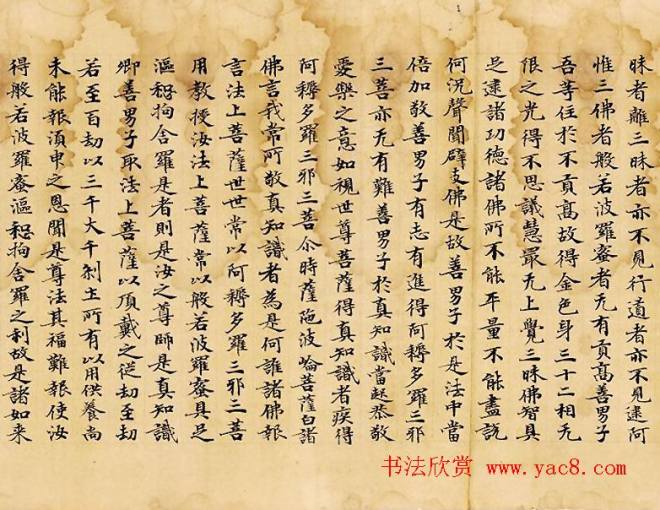 昧者離三昧者亦不見行道者亦不見逮阿
惟三佛者般若波羅蜜者无有貢高善男子
吾等住於不貢高故得金色身三十二相无
限之光得不思議慧最无上覺三昧佛智具
足逮諸功德諸佛所不能平量不能盡說
何況聲聞辟支佛是故善男子於是法中當
倍加敬善男子有志有進得阿耨多羅三耶
三菩亦无有難善男子於真知識當起恭敬
愛樂之意如視世尊菩薩得真知識者疾得
阿耨多羅三耶三菩尒時薩陁波崘菩薩白諸
佛言我常所敬真知識者為是何誰諸佛報
言法上菩薩世世常以阿耨多羅三耶三菩
用教授汝法上菩薩常以般若波羅蜜具足
漚惒拘舍羅是者則是汝之尊師是真知識
卿善男子取法上菩薩以頂戴之從劫至劫
若至百劫以三千大千剎土所有以用供養尚
未能報湏臾之恩聞是尊法其福難報使汝
得般若波羅蜜漚惒拘舍羅之利故是諸如来
书法欣赏 www.yac8.com